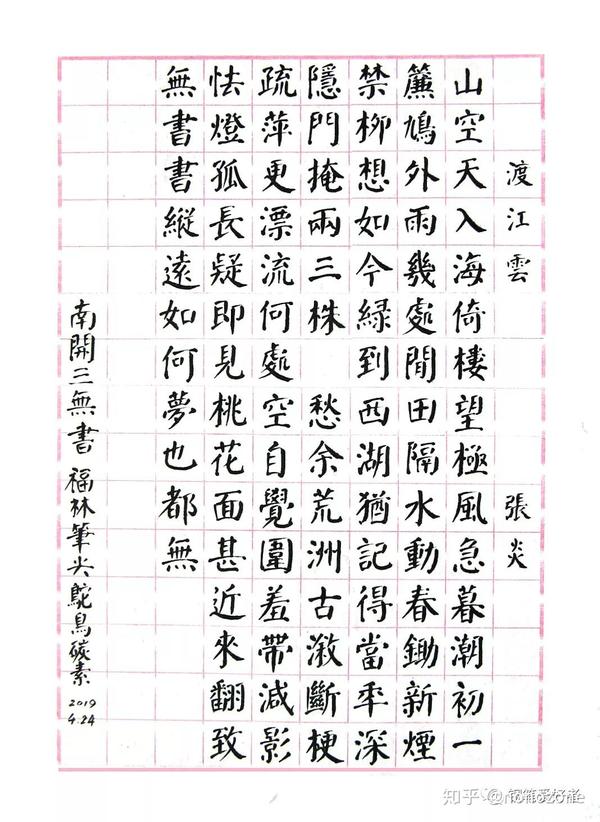 渡江雲 張炎
山空天入海倚樓望極風急暮潮初一
簾鳩外雨幾處間田隔水動春鋤新煙
禁柳想如今綠到西湖猶記得當年深
隱門掩兩三株 愁余荒洲古漵斷梗
疏萍更漂流何處空自覺圍羞帶減影
怯燈孤長疑即見桃花面甚近來翻致
無書書縱遠如何夢也都無
南開三無書 福林筆尖鴕鳥碳素 2019
4.24
知乎
钢笔爱好者